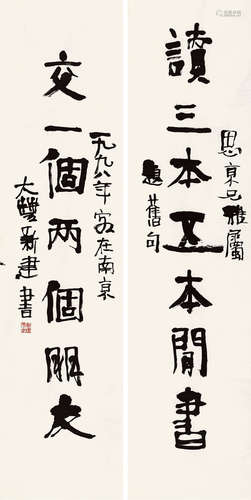 讀三本五本閒書
思京兄雅屬
題舊句
交一個兩個朋友
一九九八年客在南京
大雙新建書